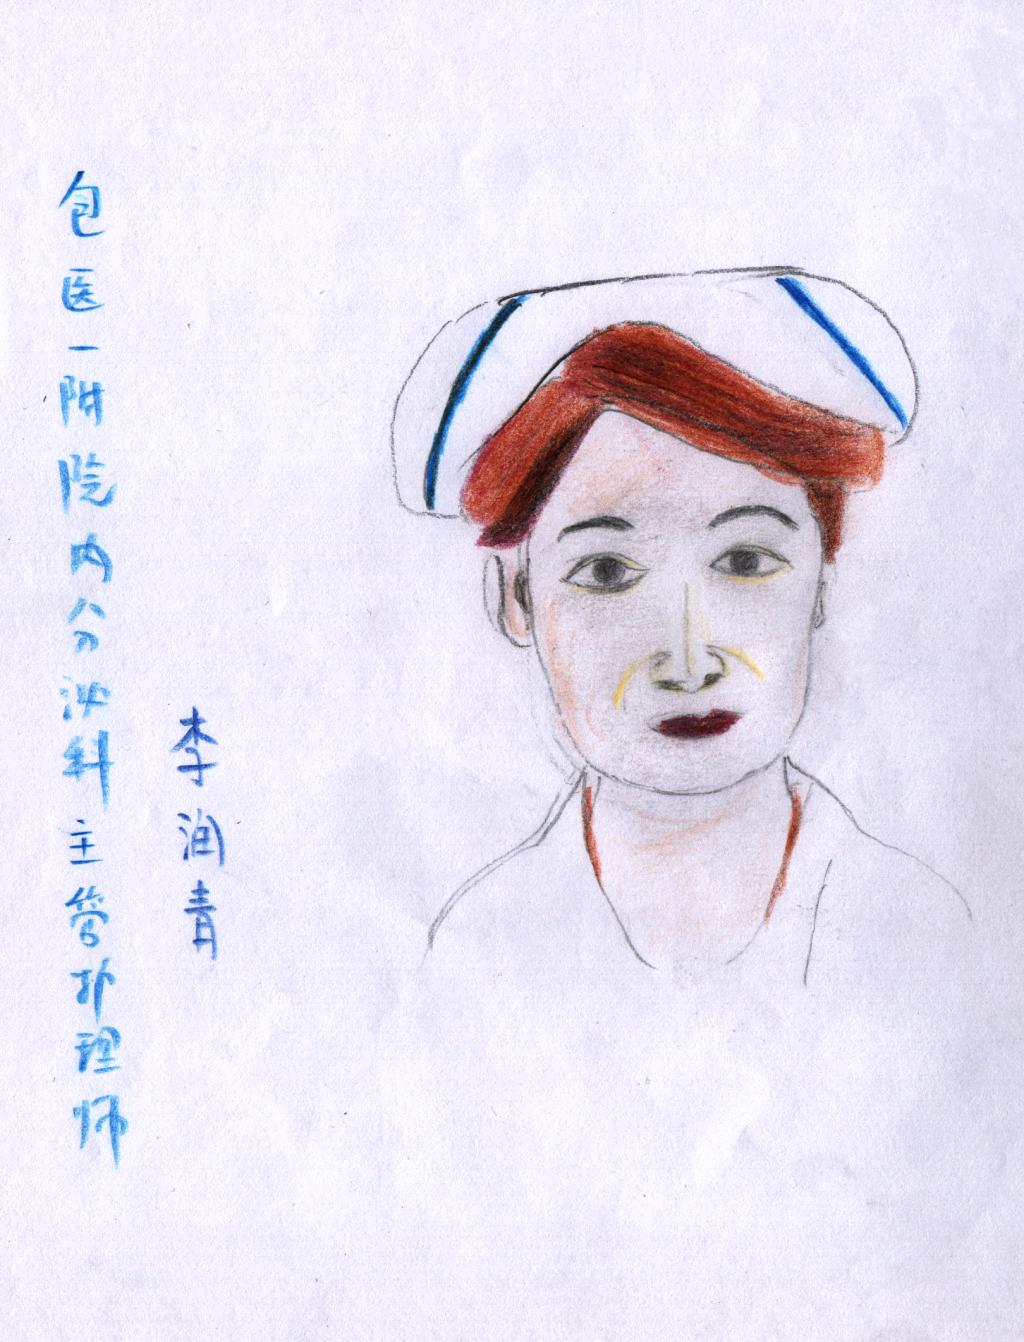 包医一附院内分泌科主管护理师
李润青